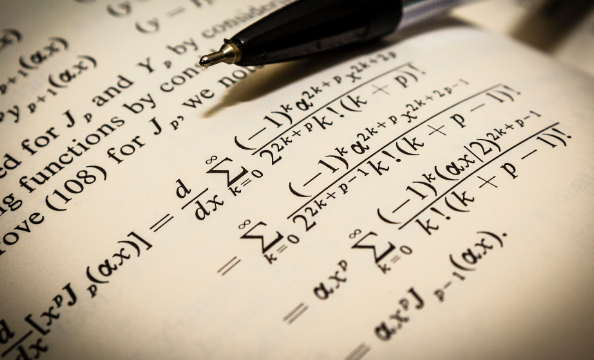 p+1(αx)
y p+1(αx)
(y
(y − 
ed for J_p and Y_p by conside
ng functions by con
rove (108) for J_p, we no
d/dx [x^p J_p(αx)] = d/dx ∑_{k=0}^{∞} (−1)^k α^{2k+p} x^{2k+2p} / 2^{2k+p} k!(k + p)!
= ∑_{k=0}^{∞} (−1)^k α^{2k+p} x^{2k+2p−1} / 2^{2k+p−1} k!(k + p − 1)!
= αx^p ∑_{k=0}^{∞} (−1)^k (αx/2)^{2k+p−1} / k!(k + p − 1)!
= αx^p J_{p−1}(αx).